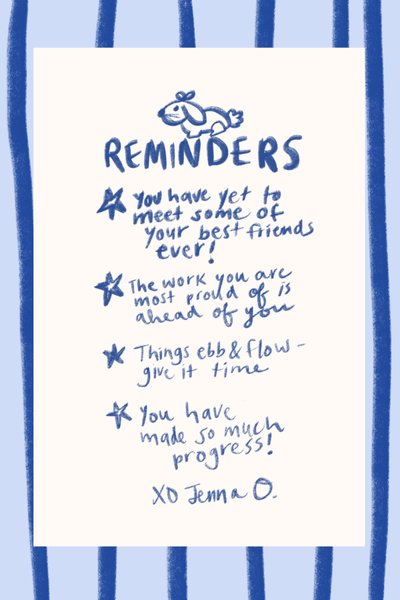 REMINDERS
You have yet to
meet some of
your best friends
ever!
The work you are
most proud of is
ahead of you
Things ebb & flow -
give it time
You have
made so much
progress!
XO Jenna O.